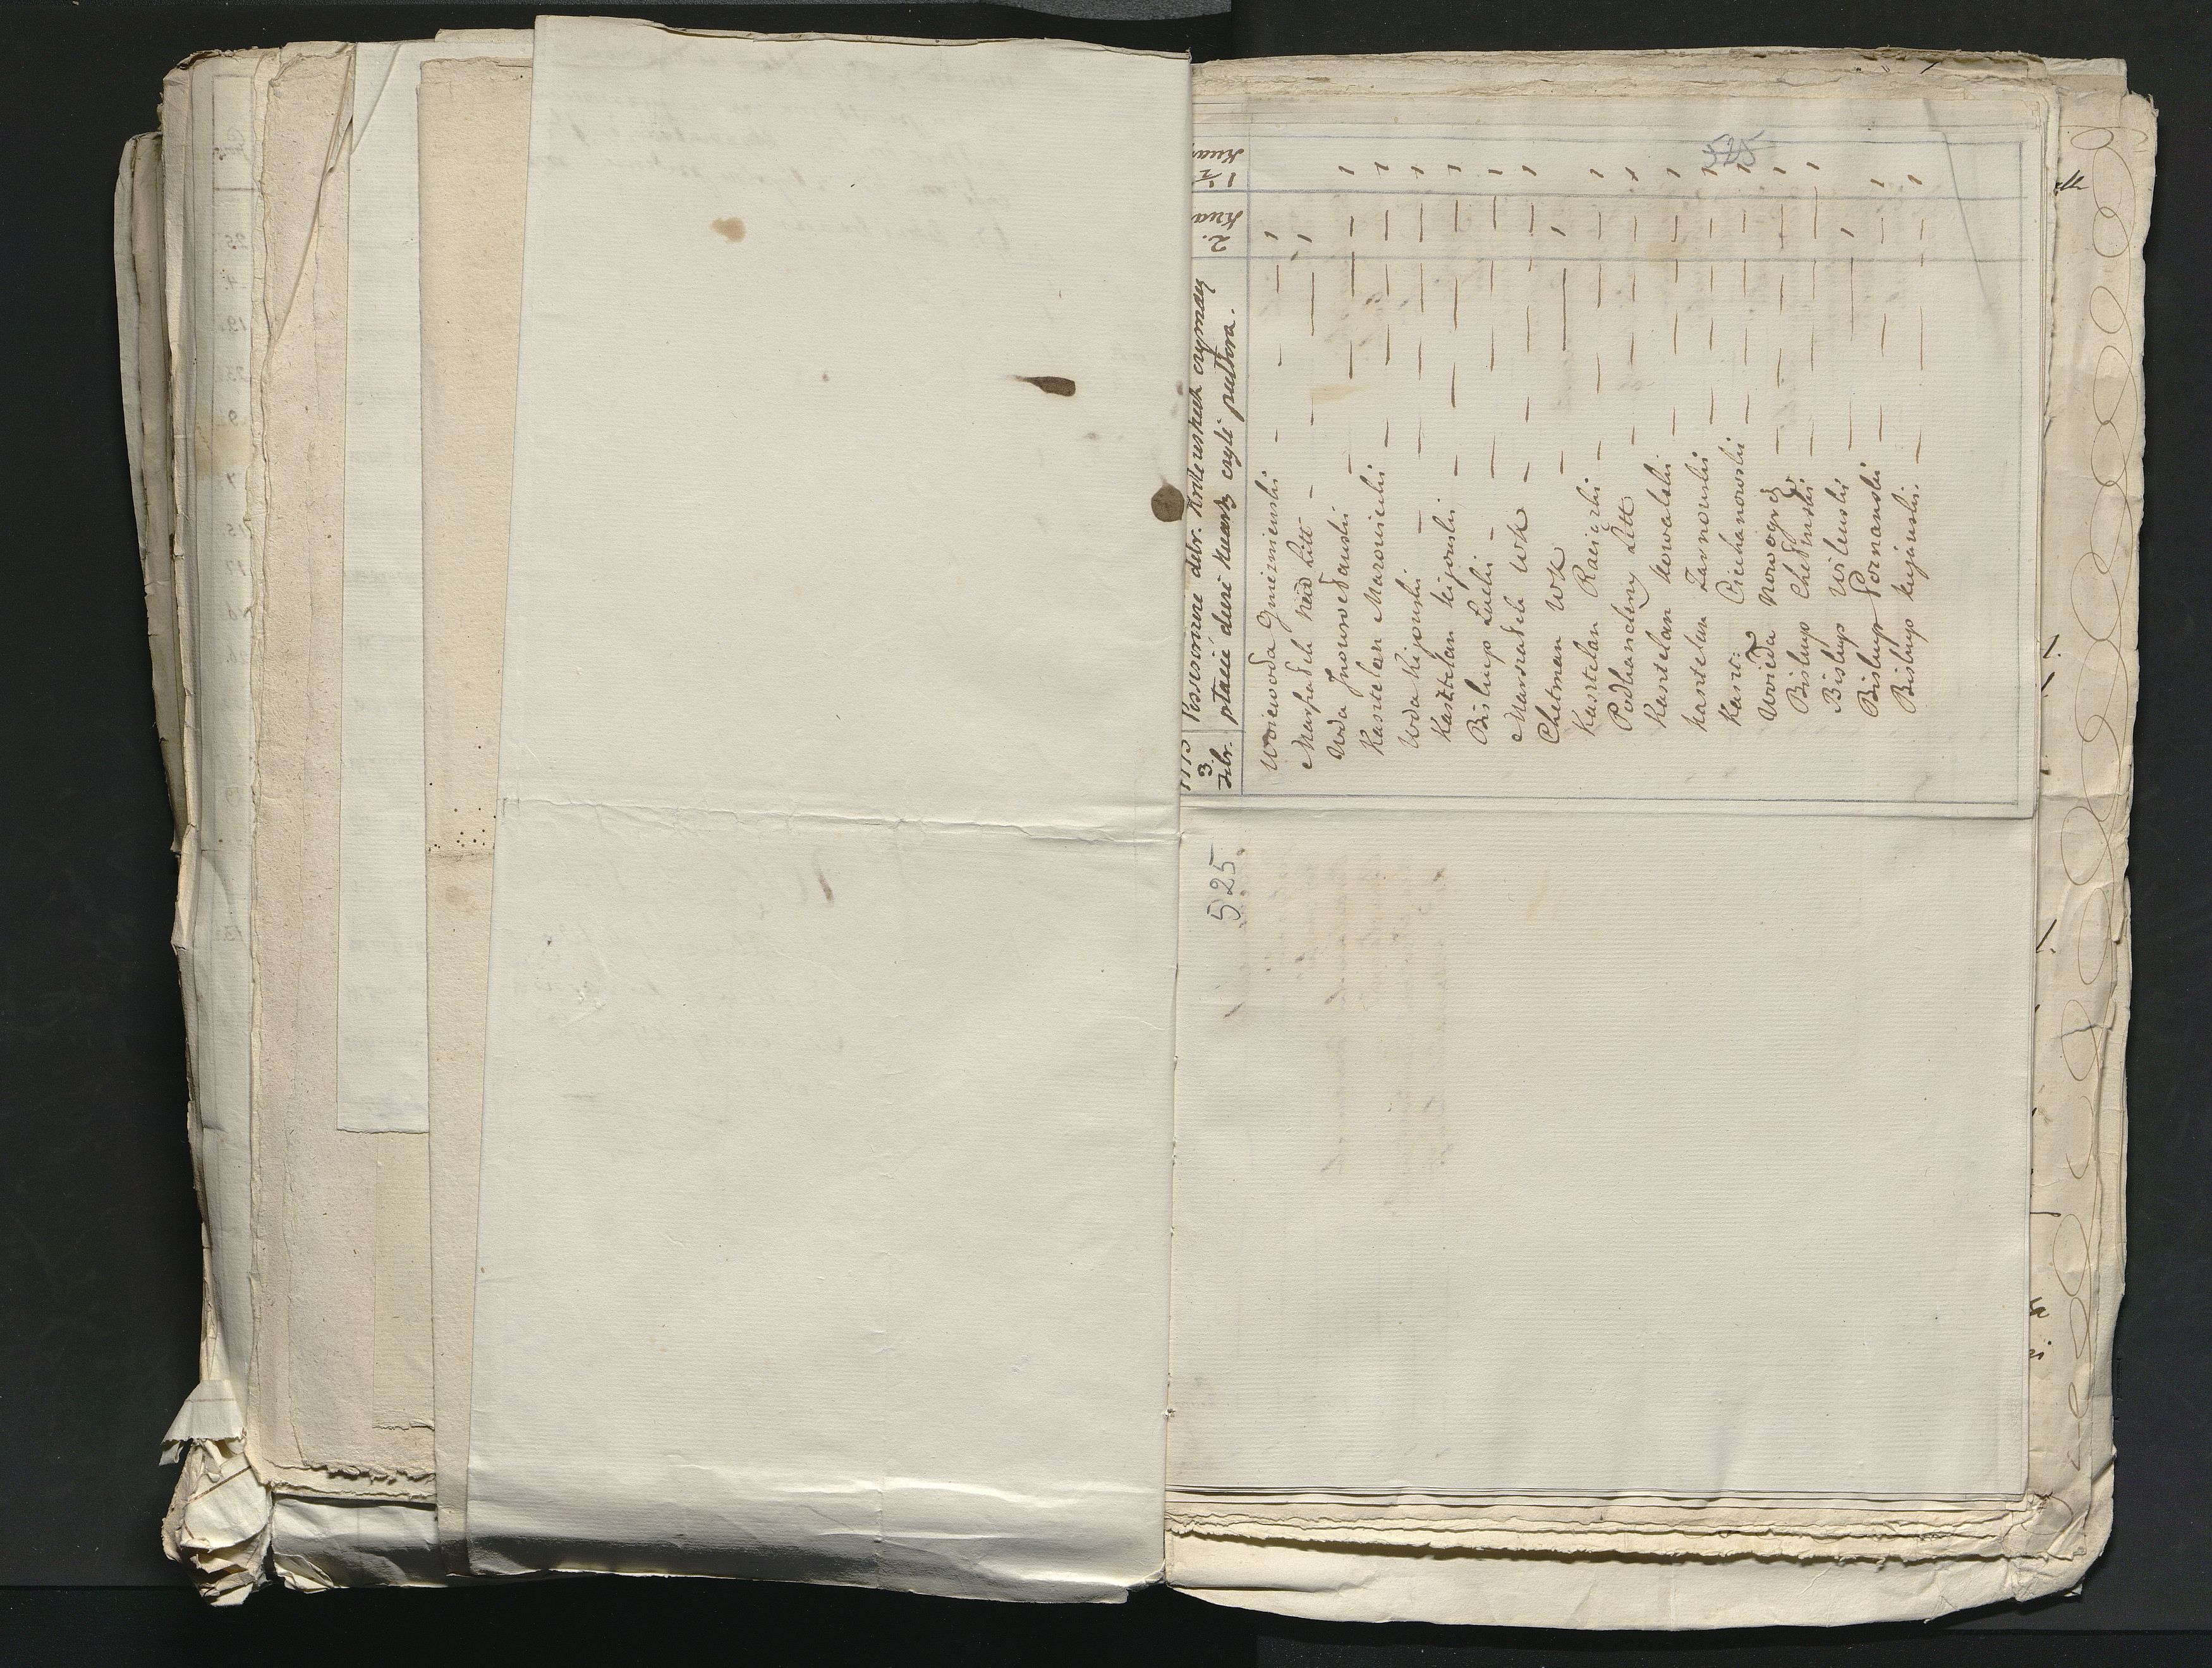 1775
3
Xbr.
Possessorowie dobr. Krolewskich czy maią
płacić dwie kwarty czyli półtora.
2.
Kwar
1 1/2
Kwar
Woiewoda Gnieznienski — — — 1
Marszałek Litt — — — 1
Wda Inowrocławski — — — — 1
Kasztelan Mazowiecki — — — — 1
Wda Kijowski — — — — 1
Kasztelan Kijowski — — — — 1
Biskup Łucki — — — — — 1
Marszałek WK — — — — — 1
Chetman WK — — 1
Kasztelan Raciązki — — — — 1
Podkanclerzy Litt — — — — 1
Kasztelan Kowalski — — — — 1
Kasztelan Zarnowski — — — — 1
Kaszt: Ciechanowski — — — — 1
Woieda Nowogrd — — — — 1
Biskup Chełmski — — — — 1
Biskup Wilenski — — — 1
Biskup Poznanski — — — — 1
Biskup Kujawski. — — — — 1
525
525